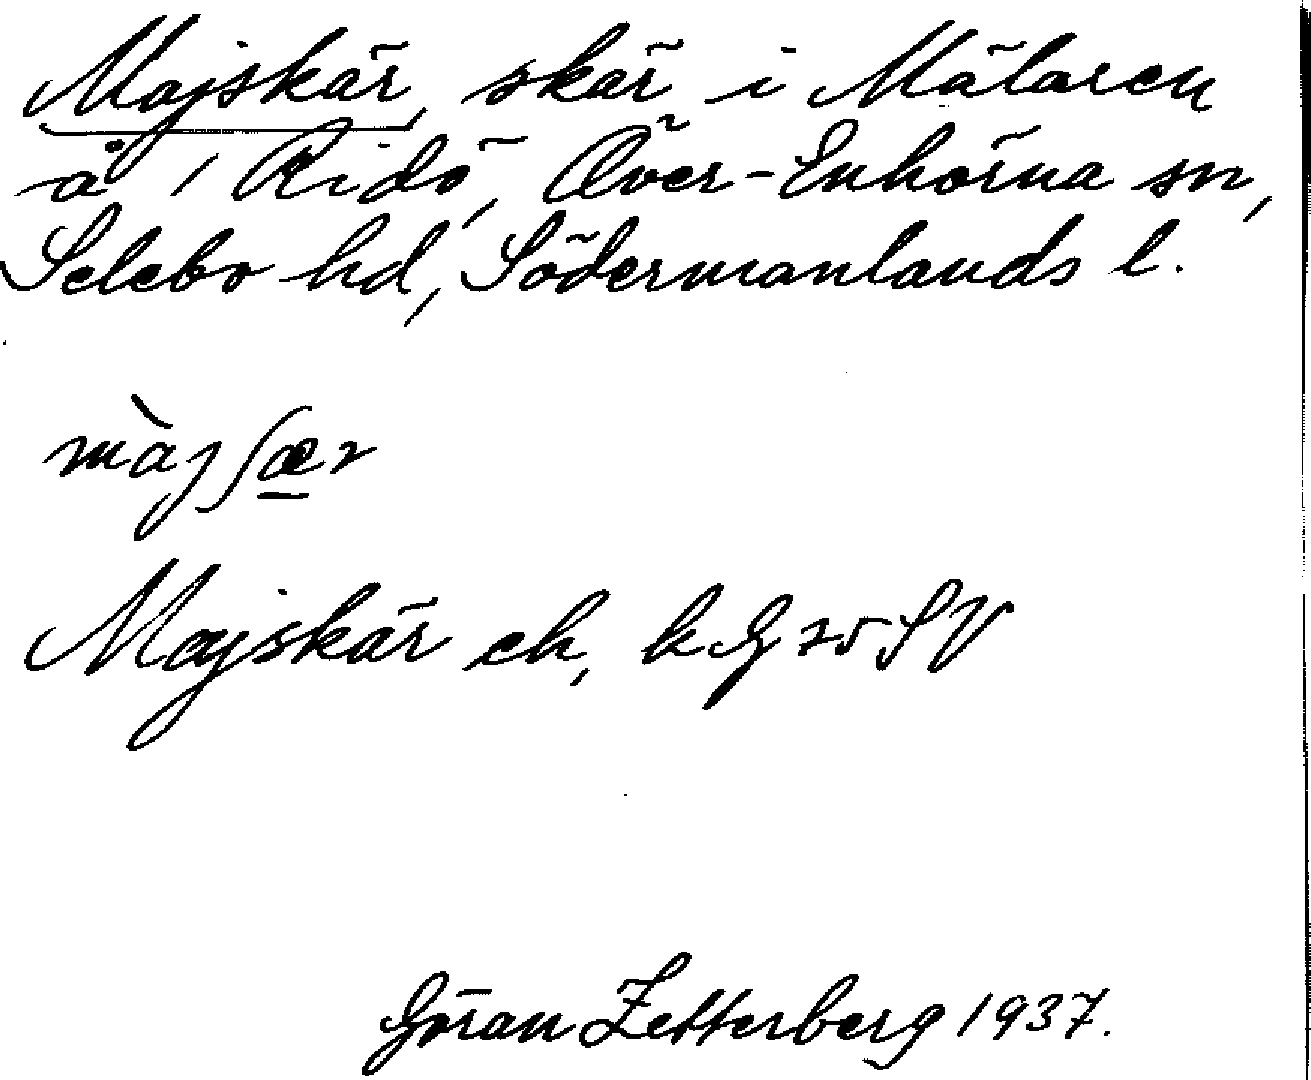 Majskär, skär i Mälaren
å 1 Ridö, Över-Enhörna sn,
Selebo hd, Södermanlands l.
màjʃæ̲r
Majskär ek,
Göran Zetterberg 1937.